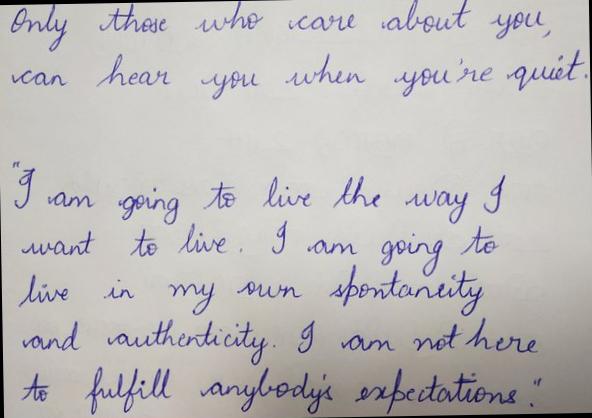 Only those who care about you,
can hear you when you're quiet.
"I am going to live the way I
want to live. I am going to
live in my own spontaneity
and authenticity. I am not here
to fulfill anybody's expectations."